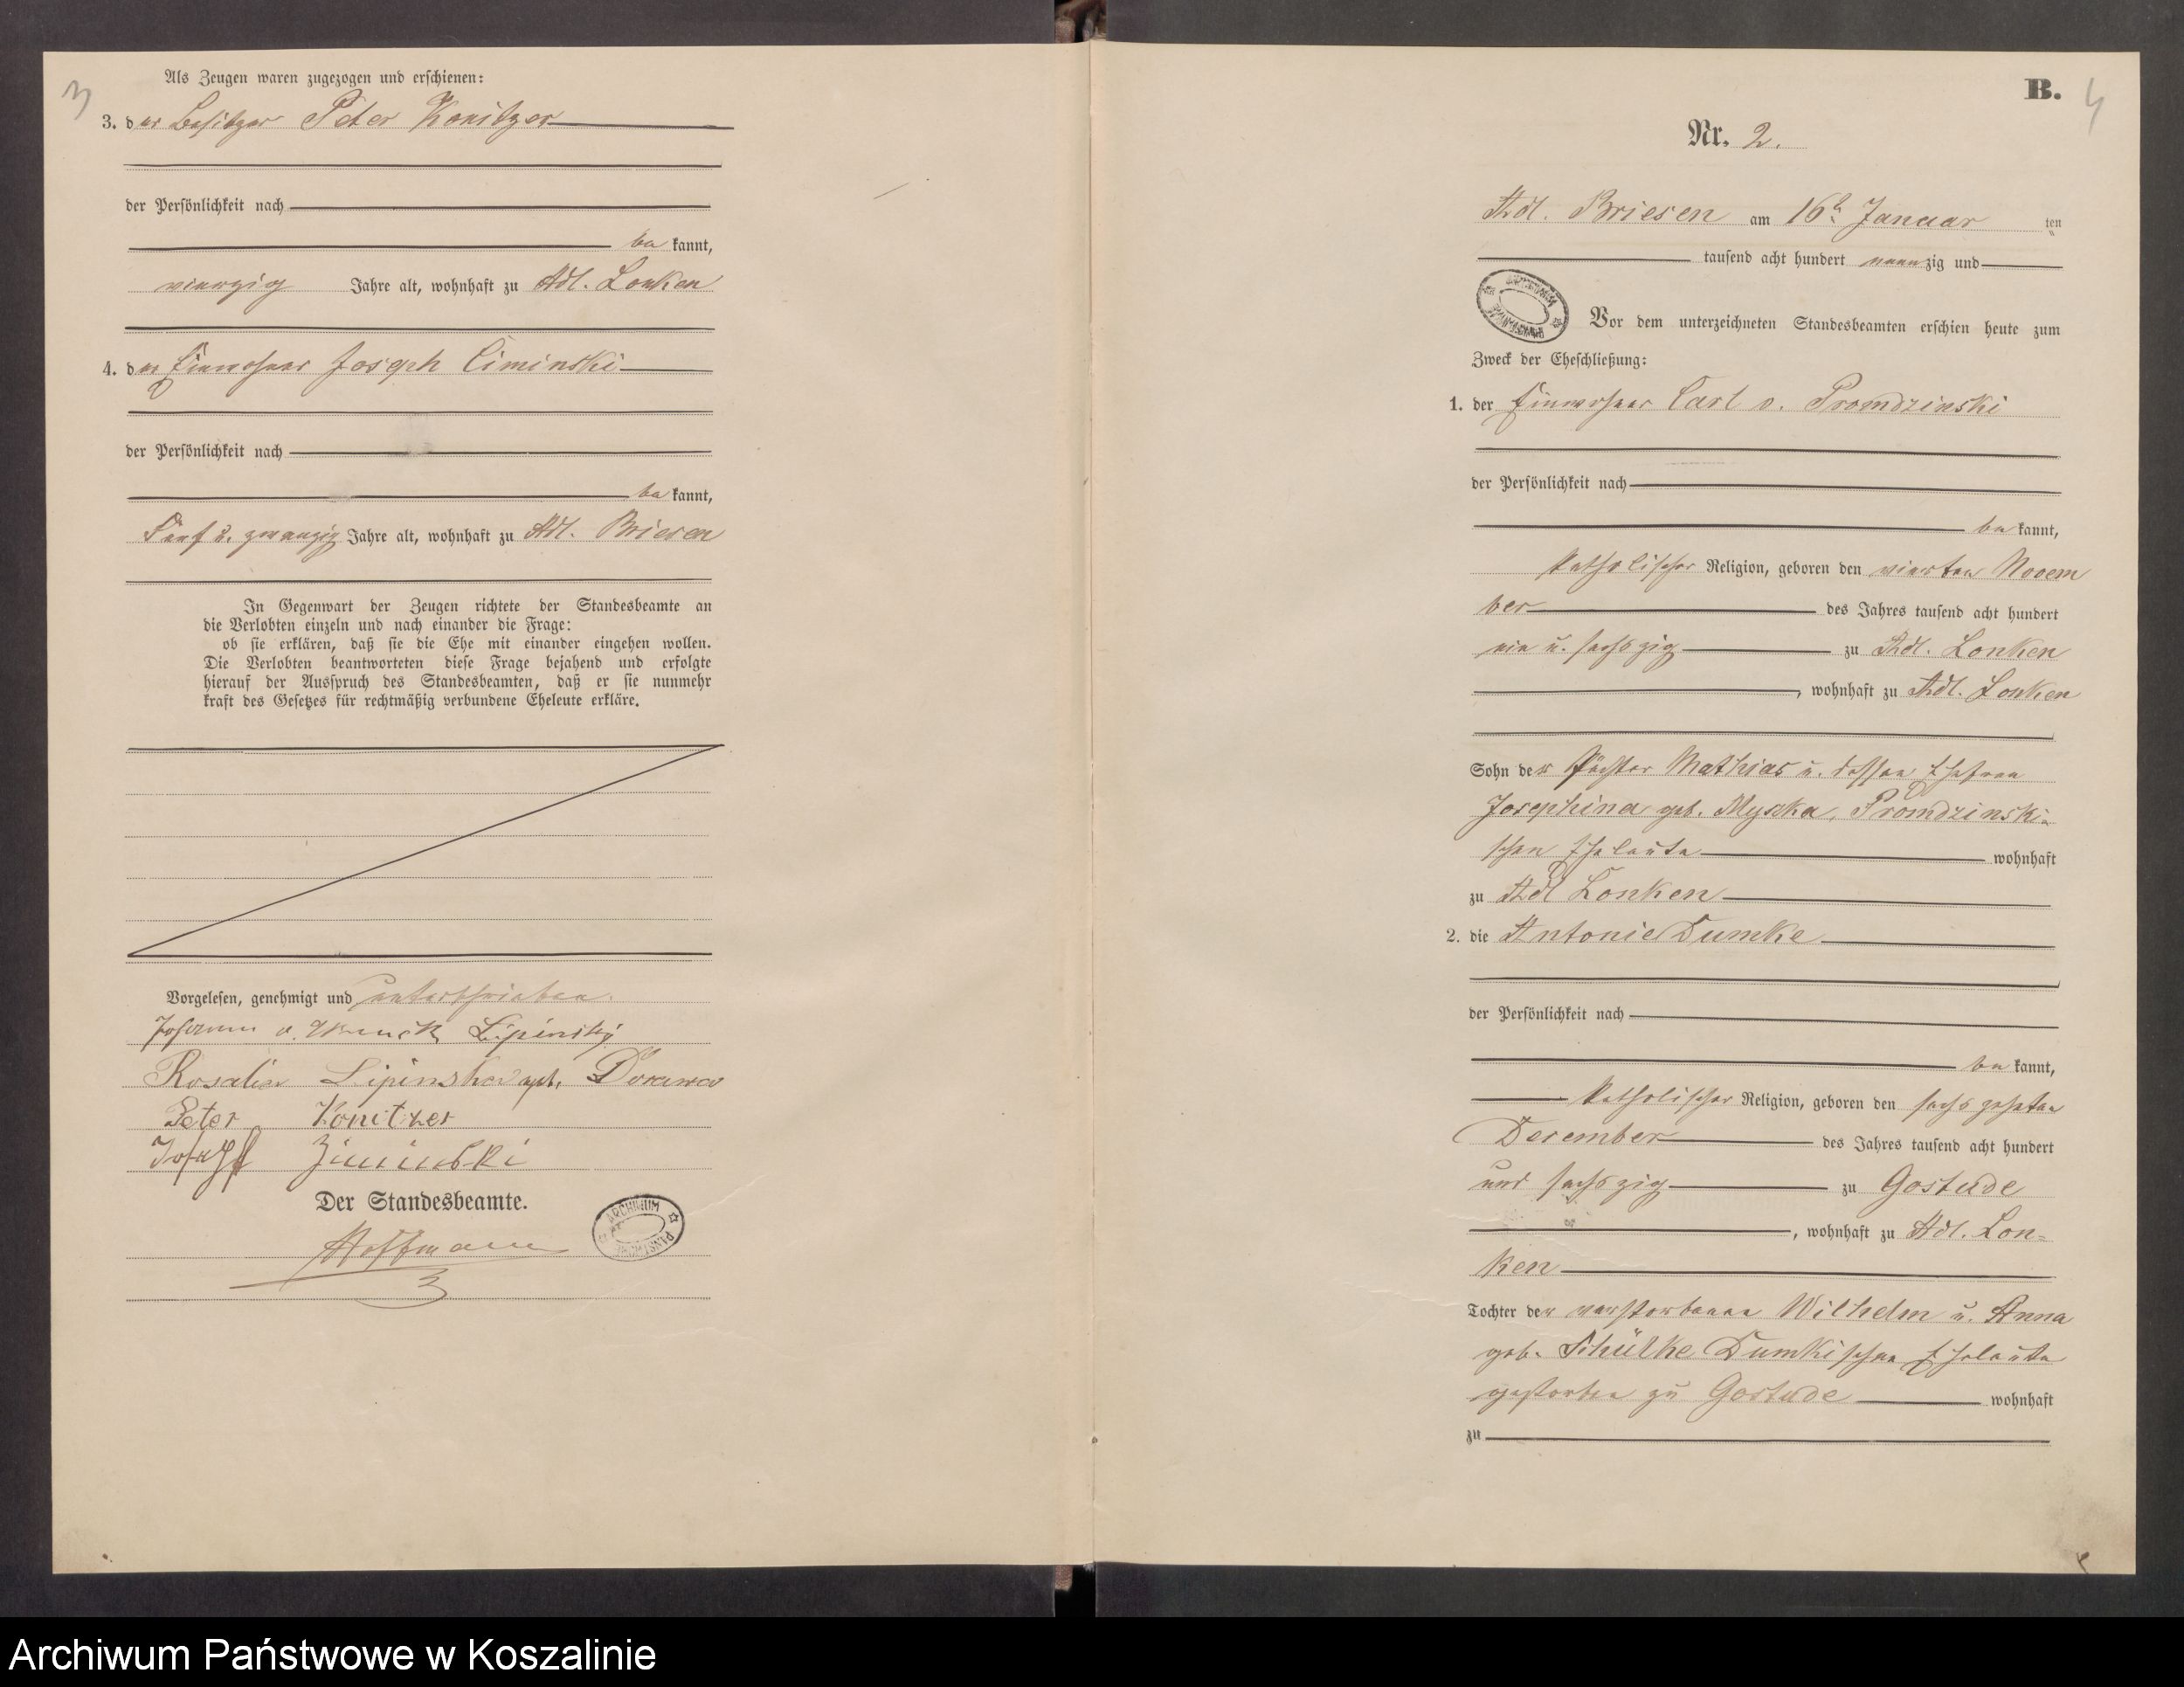 3
Als Zeugen waren zugezogen und erschienen:
3. der Besitzer Peter Konitzer
der Persönlichkeit nach
bekannt,
vierzig Jahre alt, wohnhaft zu Adl. Lonken
4. der Einwohner Joseph Ciminski
der Persönlichkeit nach
bekannt,
Fünf u. zwanzig Jahre alt, wohnhaft zu Adl. Briesen
In Gegenwart der Zeugen richtete der Standesbeamte an
die Verlobten einzeln und nach einander die Frage:
ob sie erklären, daß sie die Ehe mit einander eingehen wollen.
Die Verlobten beantworteten diese Frage bejahend und erfolgte
hierauf der Ausspruch des Standesbeamten, daß er sie nunmehr
kraft des Gesetzes für rechtmäßig verbundene Eheleute erkläre.
Vorgelesen, genehmigt und unterschrieben.
Johann v. Lipinsky
Rosalia Lipinska geb.
Peter Konitzer
Joseph Ziminski
Der Standesbeamte.
Hoffmann
ARCHIWUM PAŃSTWOWE
B. 4
Nr. 2.
Adl. Briesen am 16ten Januar ten
tausend acht hundert neunzig und
ARCHIWUM PAŃSTWOWE
Vor dem unterzeichneten Standesbeamten erschien heute zum
Zweck der Eheschließung:
1. der Einwohner Carl v. Promdzinski
der Persönlichkeit nach
bekannt,
katholischer Religion, geboren den vierten Novem
ber des Jahres tausend acht hundert
ein u. sechszig zu Adl. Lonken
, wohnhaft zu Adl. Lonken
Sohn der Pächter Mathias u. dessen Ehefrau
Josephina geb. Myszka, Promdzinski-
schen Eheleute wohnhaft
zu Adl Lonken
2. die Antonie Dumke
der Persönlichkeit nach
bekannt,
katholischer Religion, geboren den sechszehnten
December des Jahres tausend acht hundert
und sechszig zu Gostude
, wohnhaft zu Adl. Lon-
ken
Tochter der verstorbenen Wilhelm u. Anna
geb. Schülke Dumkischen Eheleute
gestorben zu Gostude wohnhaft
zu
Archiwum Państwowe w Koszalinie